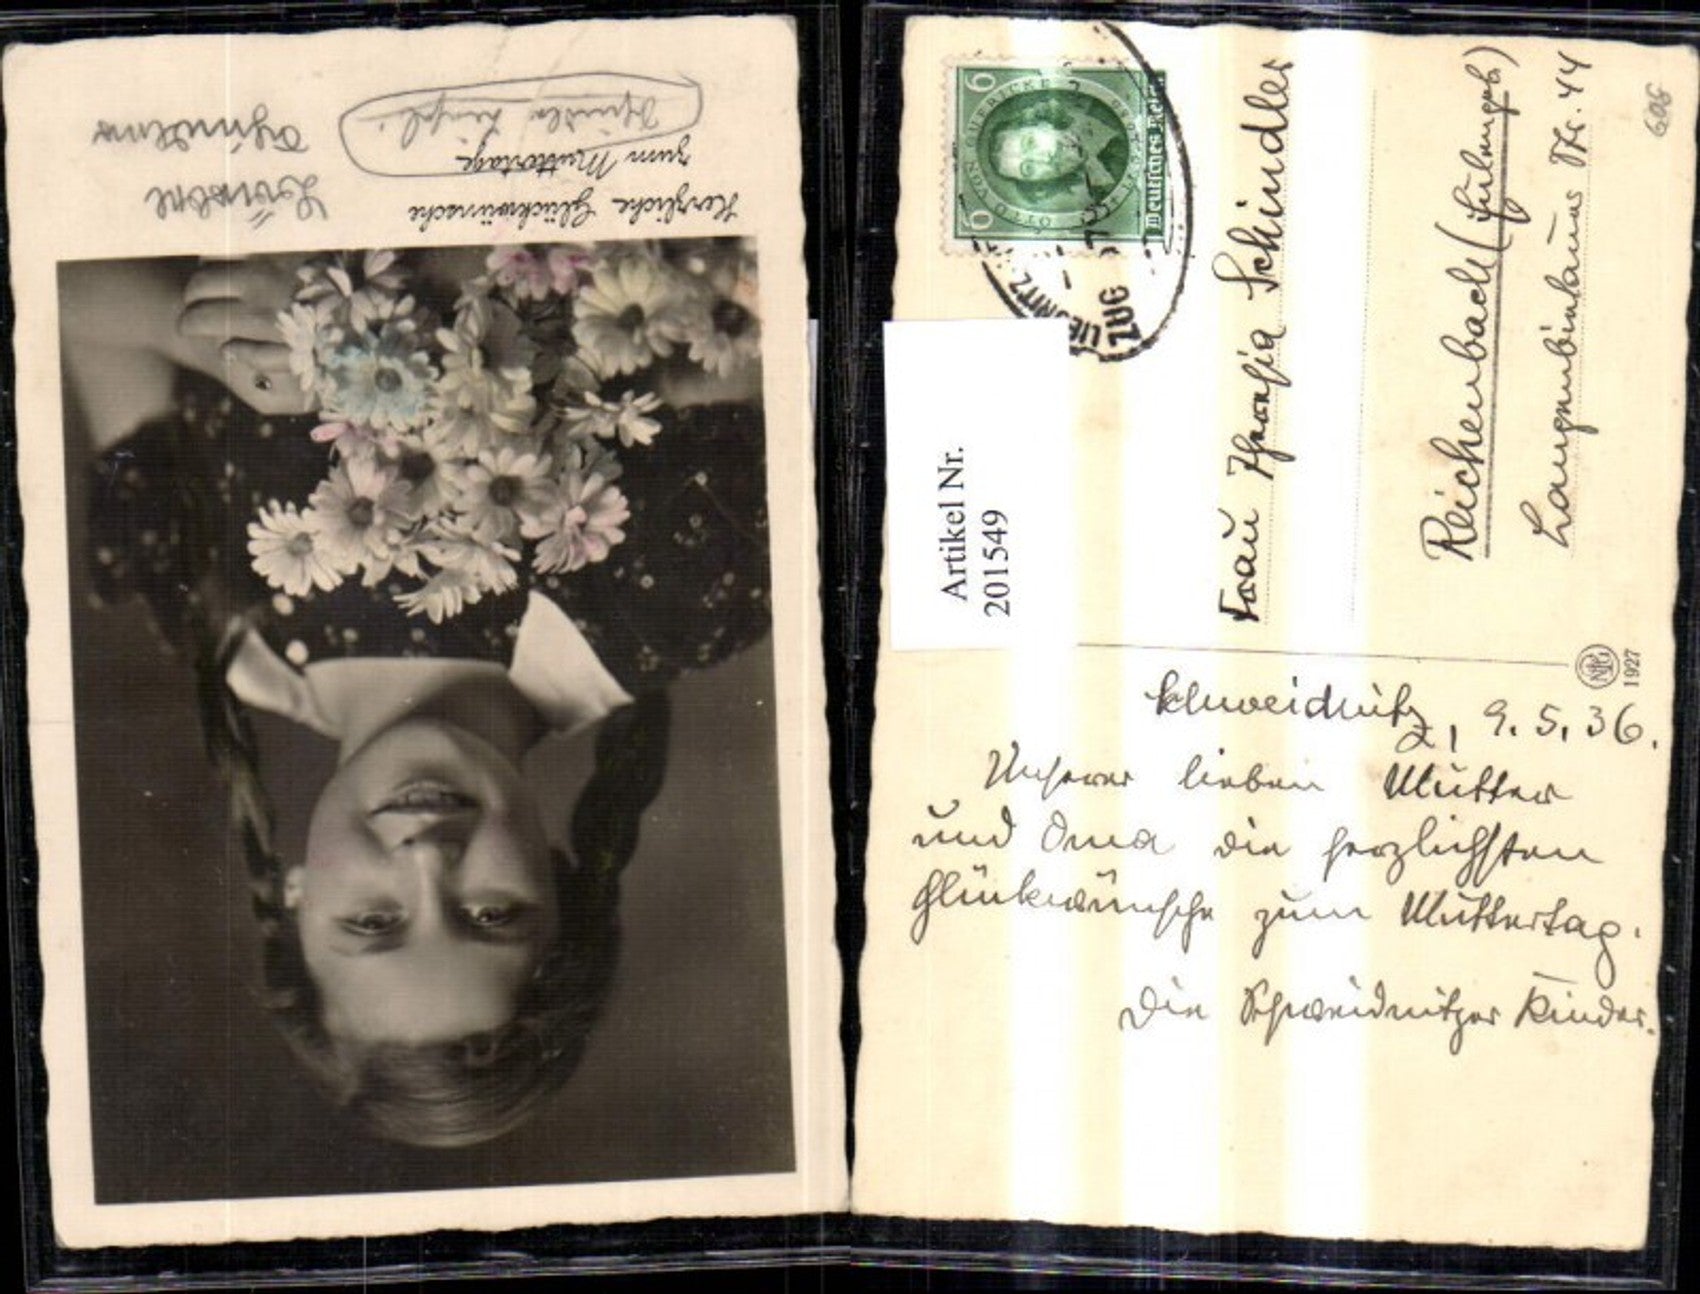 Herzliche Glückwünsche
zum Muttertage
Schindler
6
OTTO VON GUERICKE
Deutsches Reich
ZUG
Artikel Nr.
201549
Frau Schindler
Reichenbach (Eulengeb.)
Langenbielauer Str. 44
609
1927
Schweidnitz, 9.5.36.
Unserer lieben Mutter
und Oma die herzlichsten
Glückwünsche zum Muttertag.
Die Schweidnitzer Kinder.